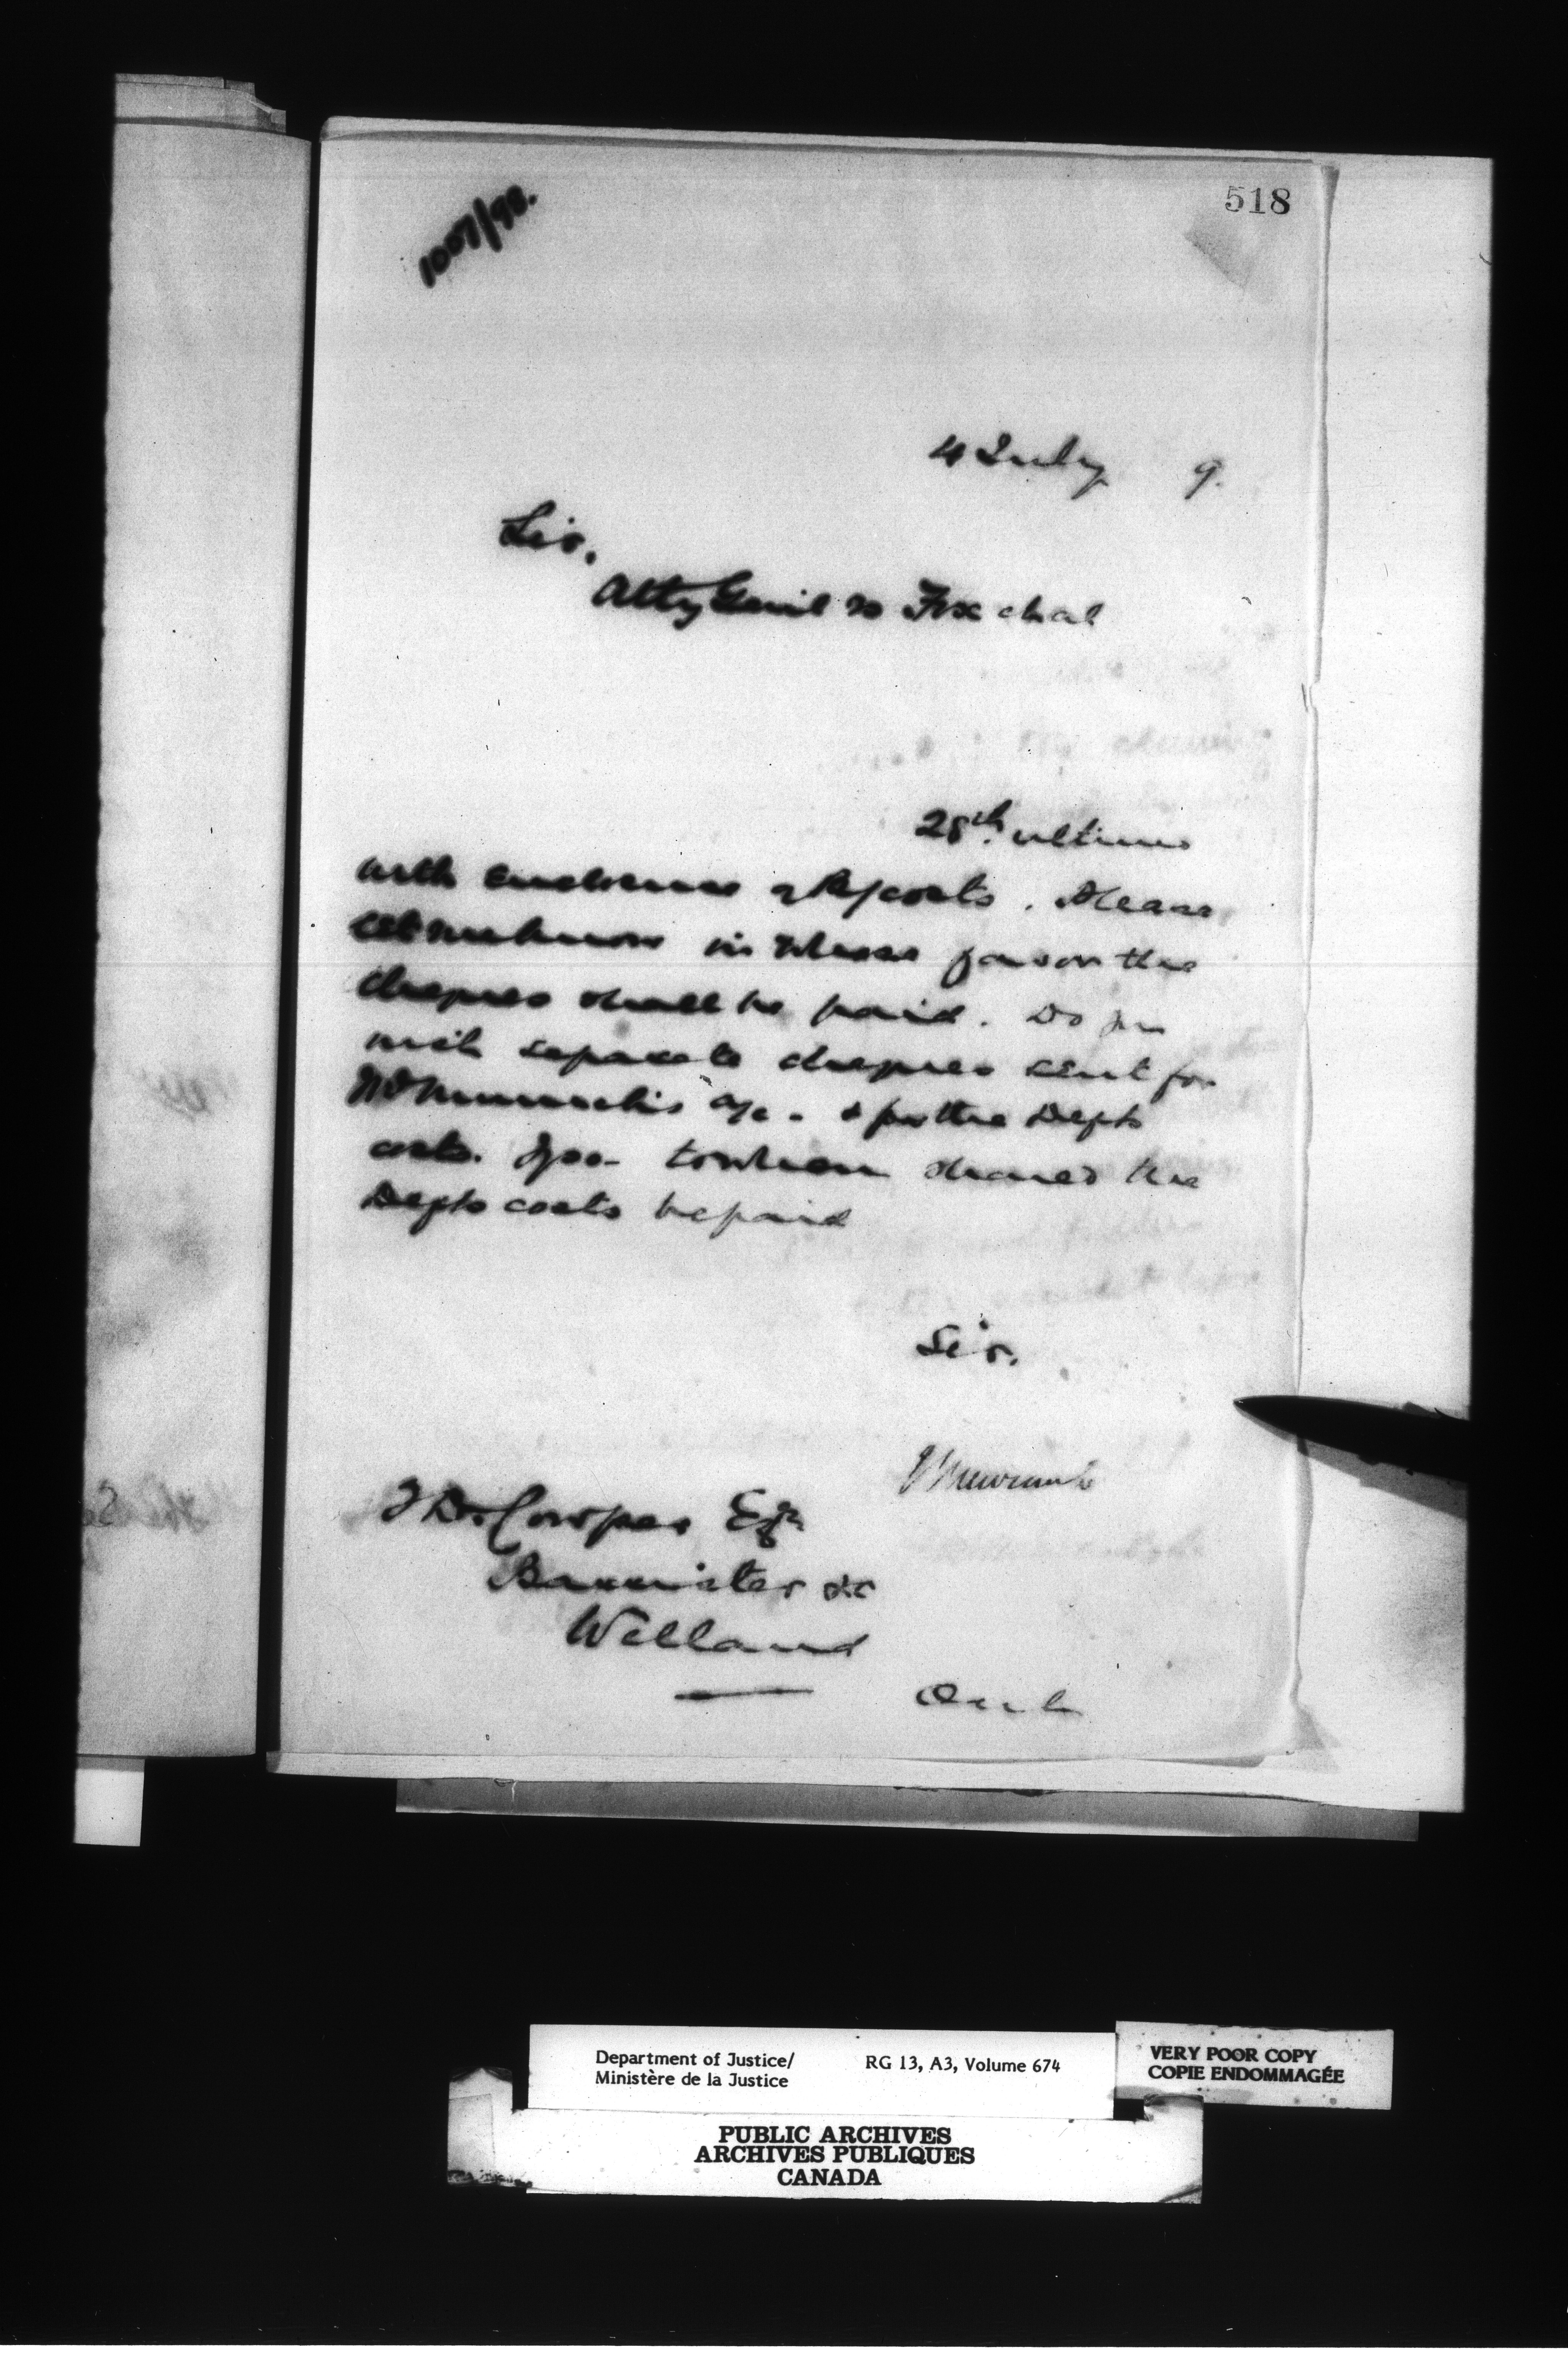 518
1007/98.
4 July 9.
Sir,
Atty Genl vs Fox et al
28th ultimo
with enclosures costs. Please
let me know in whose favor the
cheques shall be paid. Do you
wish separate cheques sent for
a/c. & for the Depts
costs. If so to whom should the
Depts costs be paid
Sir,
Newcombe
Cowper Esq
Barrister &c
Welland
Ont
Department of Justice/
Ministère de la Justice
RG 13, A3, Volume 674
VERY POOR COPY
COPIE ENDOMMAGÉE
PUBLIC ARCHIVES
ARCHIVES PUBLIQUES
CANADA